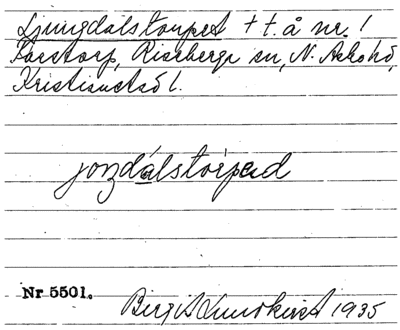 Ljungdalstorpet † t. å nr. 1
Forstorp, Riseberga sn, N. Åsbo hd,
Kristianstads l.
joŋdálstorpəd
Nr 5501.
Birgit Lundkvist 1935